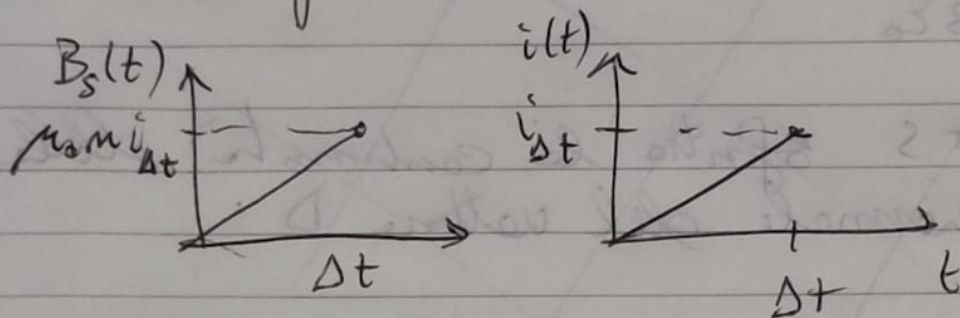 B_s(t)
μ₀ n i_Δt
Δt
i(t)
i_Δt
Δt
t